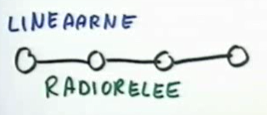 LINEAARNE
RADIORELEE